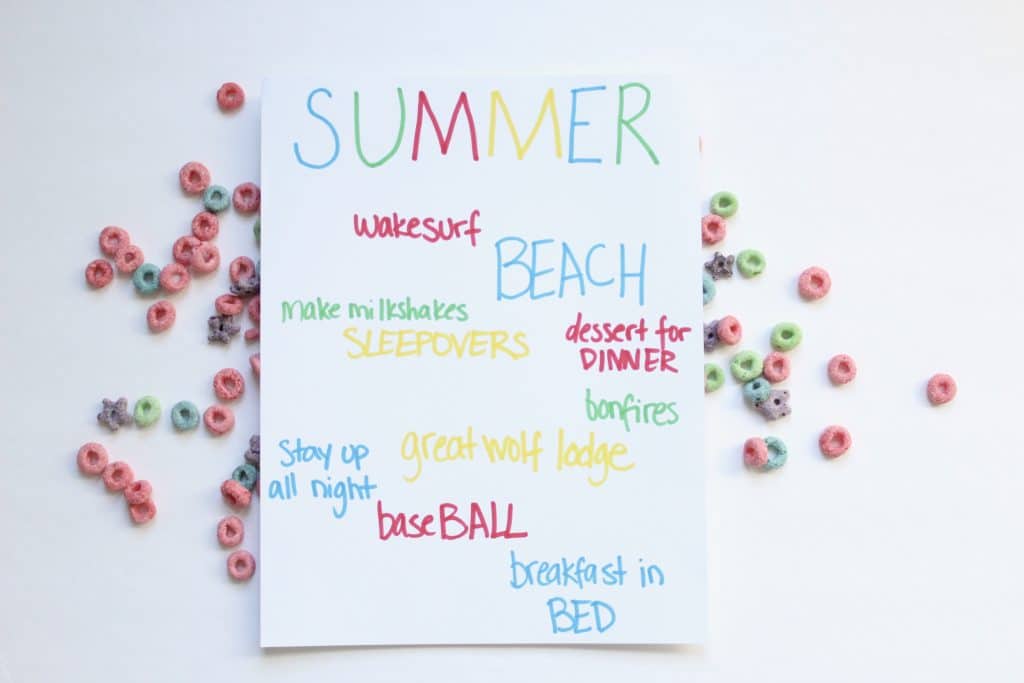 SUMMER
wakesurf
BEACH
make milkshakes
SLEEPOVERS
dessert for
DINNER
bonfires
great wolf lodge
stay up
all night
baseBALL
breakfast in
BED